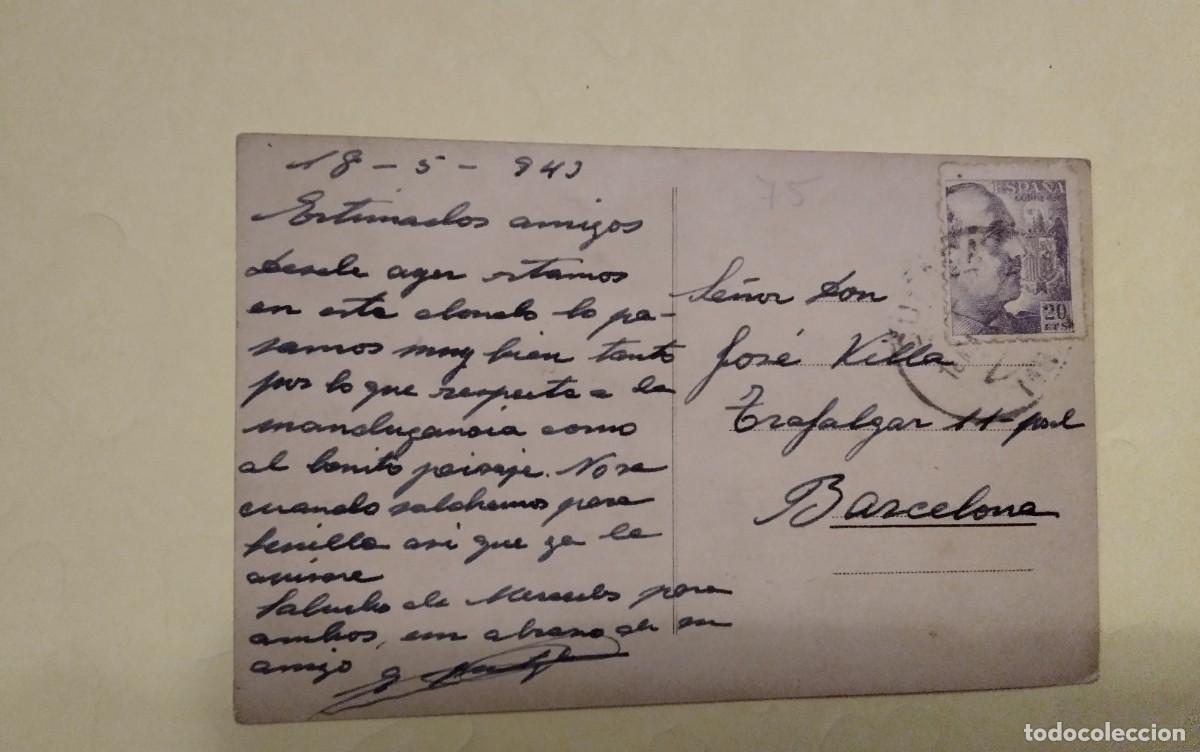 18 - 5 - 943
Estimados amigos
Desde ayer estamos
en esta donde lo pa-
samos muy bien tanto
por lo que respecta a la
mandugancia como
al bonito paisaje. No se
cuando saldremos para
Sevilla asi que ya le
avisare
Saludos de Mercedes para
ambos, un abrazo de su
amigo
75
ESPAÑA
CORREOS
20
CTS
Señor Don
José Villa
Trafalgar 11 pral
Barcelona
todocoleccion